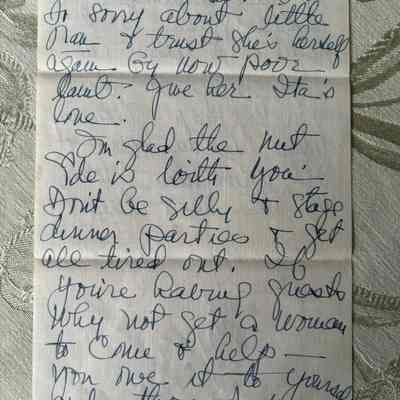 So sorry about little
Nan & trust she's herself
again by now poor
lamb. Give her Ita's
love.
I'm glad the nut
Ide is with you
Don't be silly & stage
dinner parties & get
all tired out. If
you're having guests
why not get a woman
to come & help —
you owe it to yourself